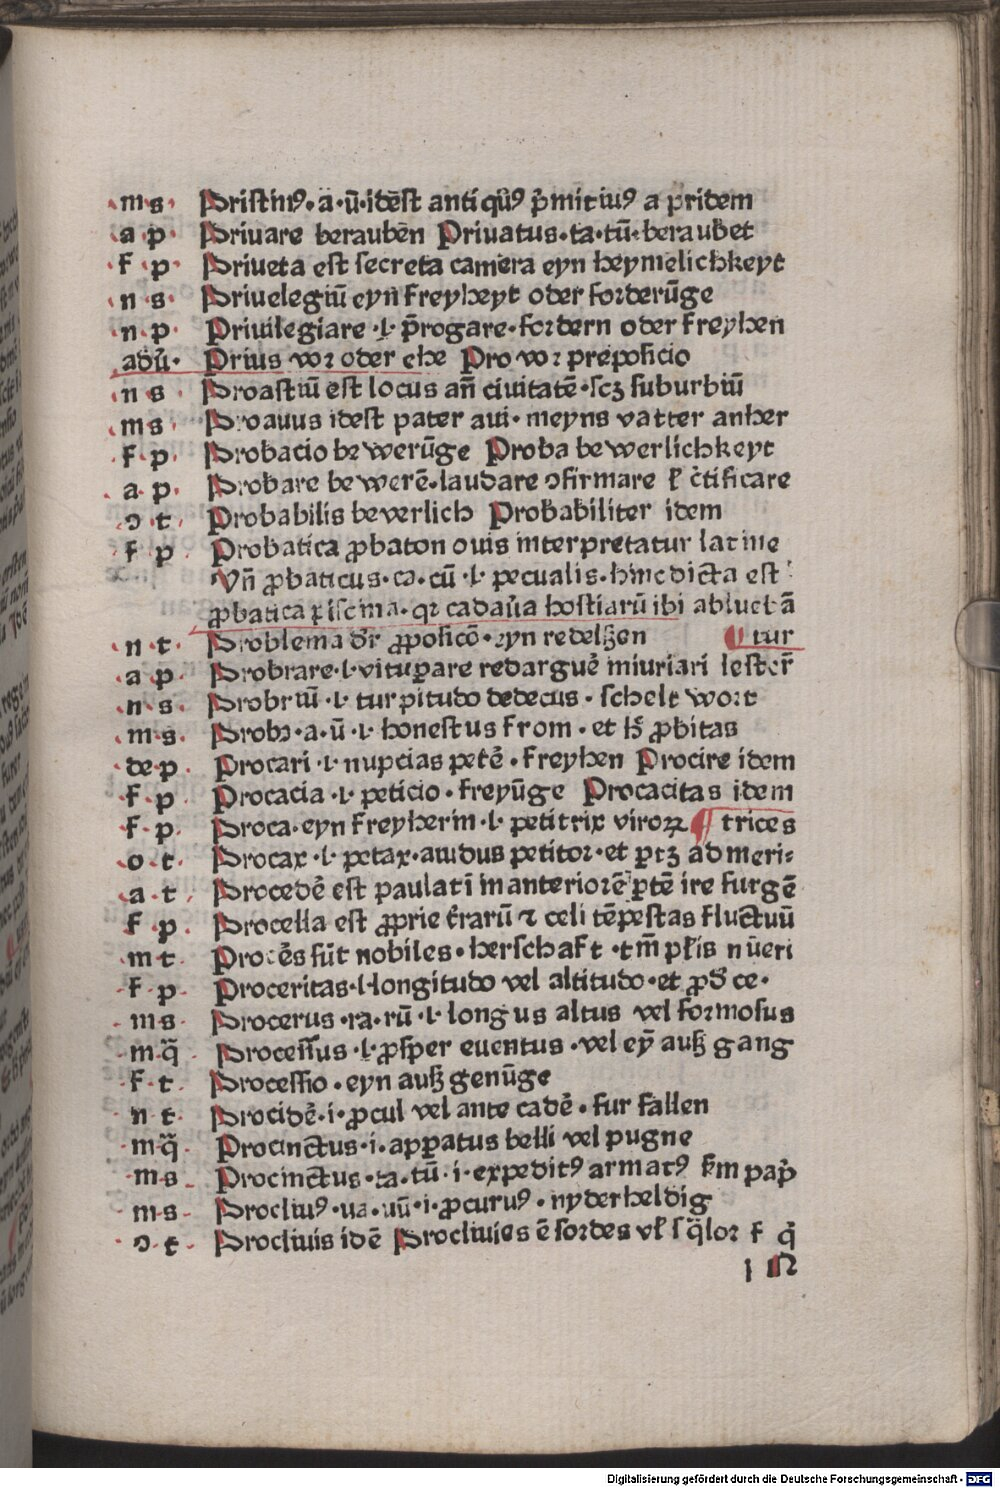 ·m s· Pristinꝰ·a·ū·idēst antiqūꝰ p̄mitiuꝰ a pridem
·a p· Priuare beraubēn Priuatus·ta·tū·beraubet
·f p· Priueta est secreta camera eyn heymelichkeyt
·n s· Priuelegiū eyn freyheyt oder forderūge
·n·p· Priuilegiare ·l· p̄rogare·fordern oder freyhen
adū· Prius vor oder ehe Pro vor preposicio
·n s Proastiū est locus an̄ ciuitatē·scꝫ suburbiū
·m s· Proauus idest pater aui·meyns vatter anher
·f·p· Probacio bewerūge Proba bewerlichkeyt
·a p· Probare bewerē·laudare ɔfirmare ł c̄tificare
·ɔ t· Probabilis beverlich Probabiliter idem
·f p· Probatica ꝓbaton ouis interpretatur latine
Vn̄ ꝓbaticus·ca·cū·l·pecualis·hinc dicta est
ꝓbatica piscina·qꝛ cadaūa hostiarū ibi abluebā
·n·t· Problema dr̄ ꝓposicō·eyn redelßen ¶ tur
·a p· Probrare·l·vituꝑare redarguē iniuriari lesterr̄
·n s· Probrū·l· turpitudo dedecus·schelt wort
·m·s· Probꝰ·a·ū·l·honestus from·et hꝫ ꝓbitas
·de·p· Procari·l·nupcias petē·freyhen Procire idem
·f p· Procacia·l·peticio·freyūge Procacitas idem
·f·p· Proca·eyn freyherin·l·petitrix viroꝝ ¶ trices
·o·t· Procax·l·petax·auidus petitor·et ꝑtꝫ ad meri-
·a·t· Procedē est paulatī in anteriorē ꝑtē ire furgē
f p· Procella est ꝓprie t̄rarū ⁊ celi tēpestas fluctuū
·m t· Procēs sūt nobiles·herschaft·tm̄ pl̄is nūeri
·f·p· Proceritas·l·longitudo vel altitudo·et ꝓd ce·
·m s· Procerus·ra·rū·l·longus altus vel formosus
·m·q̄· Processus·l·ꝓsper euentus·vel eȳ außgang
·f·t· Processio·eyn außgenūge
·n t· Procidē·i·ꝓcul vel ante cadē·fur fallen
·m·q̄· Procinctus·i·apꝑatus belli vel pugne
·m s· Procinctus·ta·tū·i·expeditꝰ armatꝰ ẜm pap̄
·m·s· Procliuꝰ·ua·uū·i·ꝓcuruꝰ·nyderheldig
·ɔ t· Procliuis idē Procliuies ē sordes vł sq̄lor f q̄
Digitalisierung gefördert durch die Deutsche Forschungsgemeinschaft - DFG